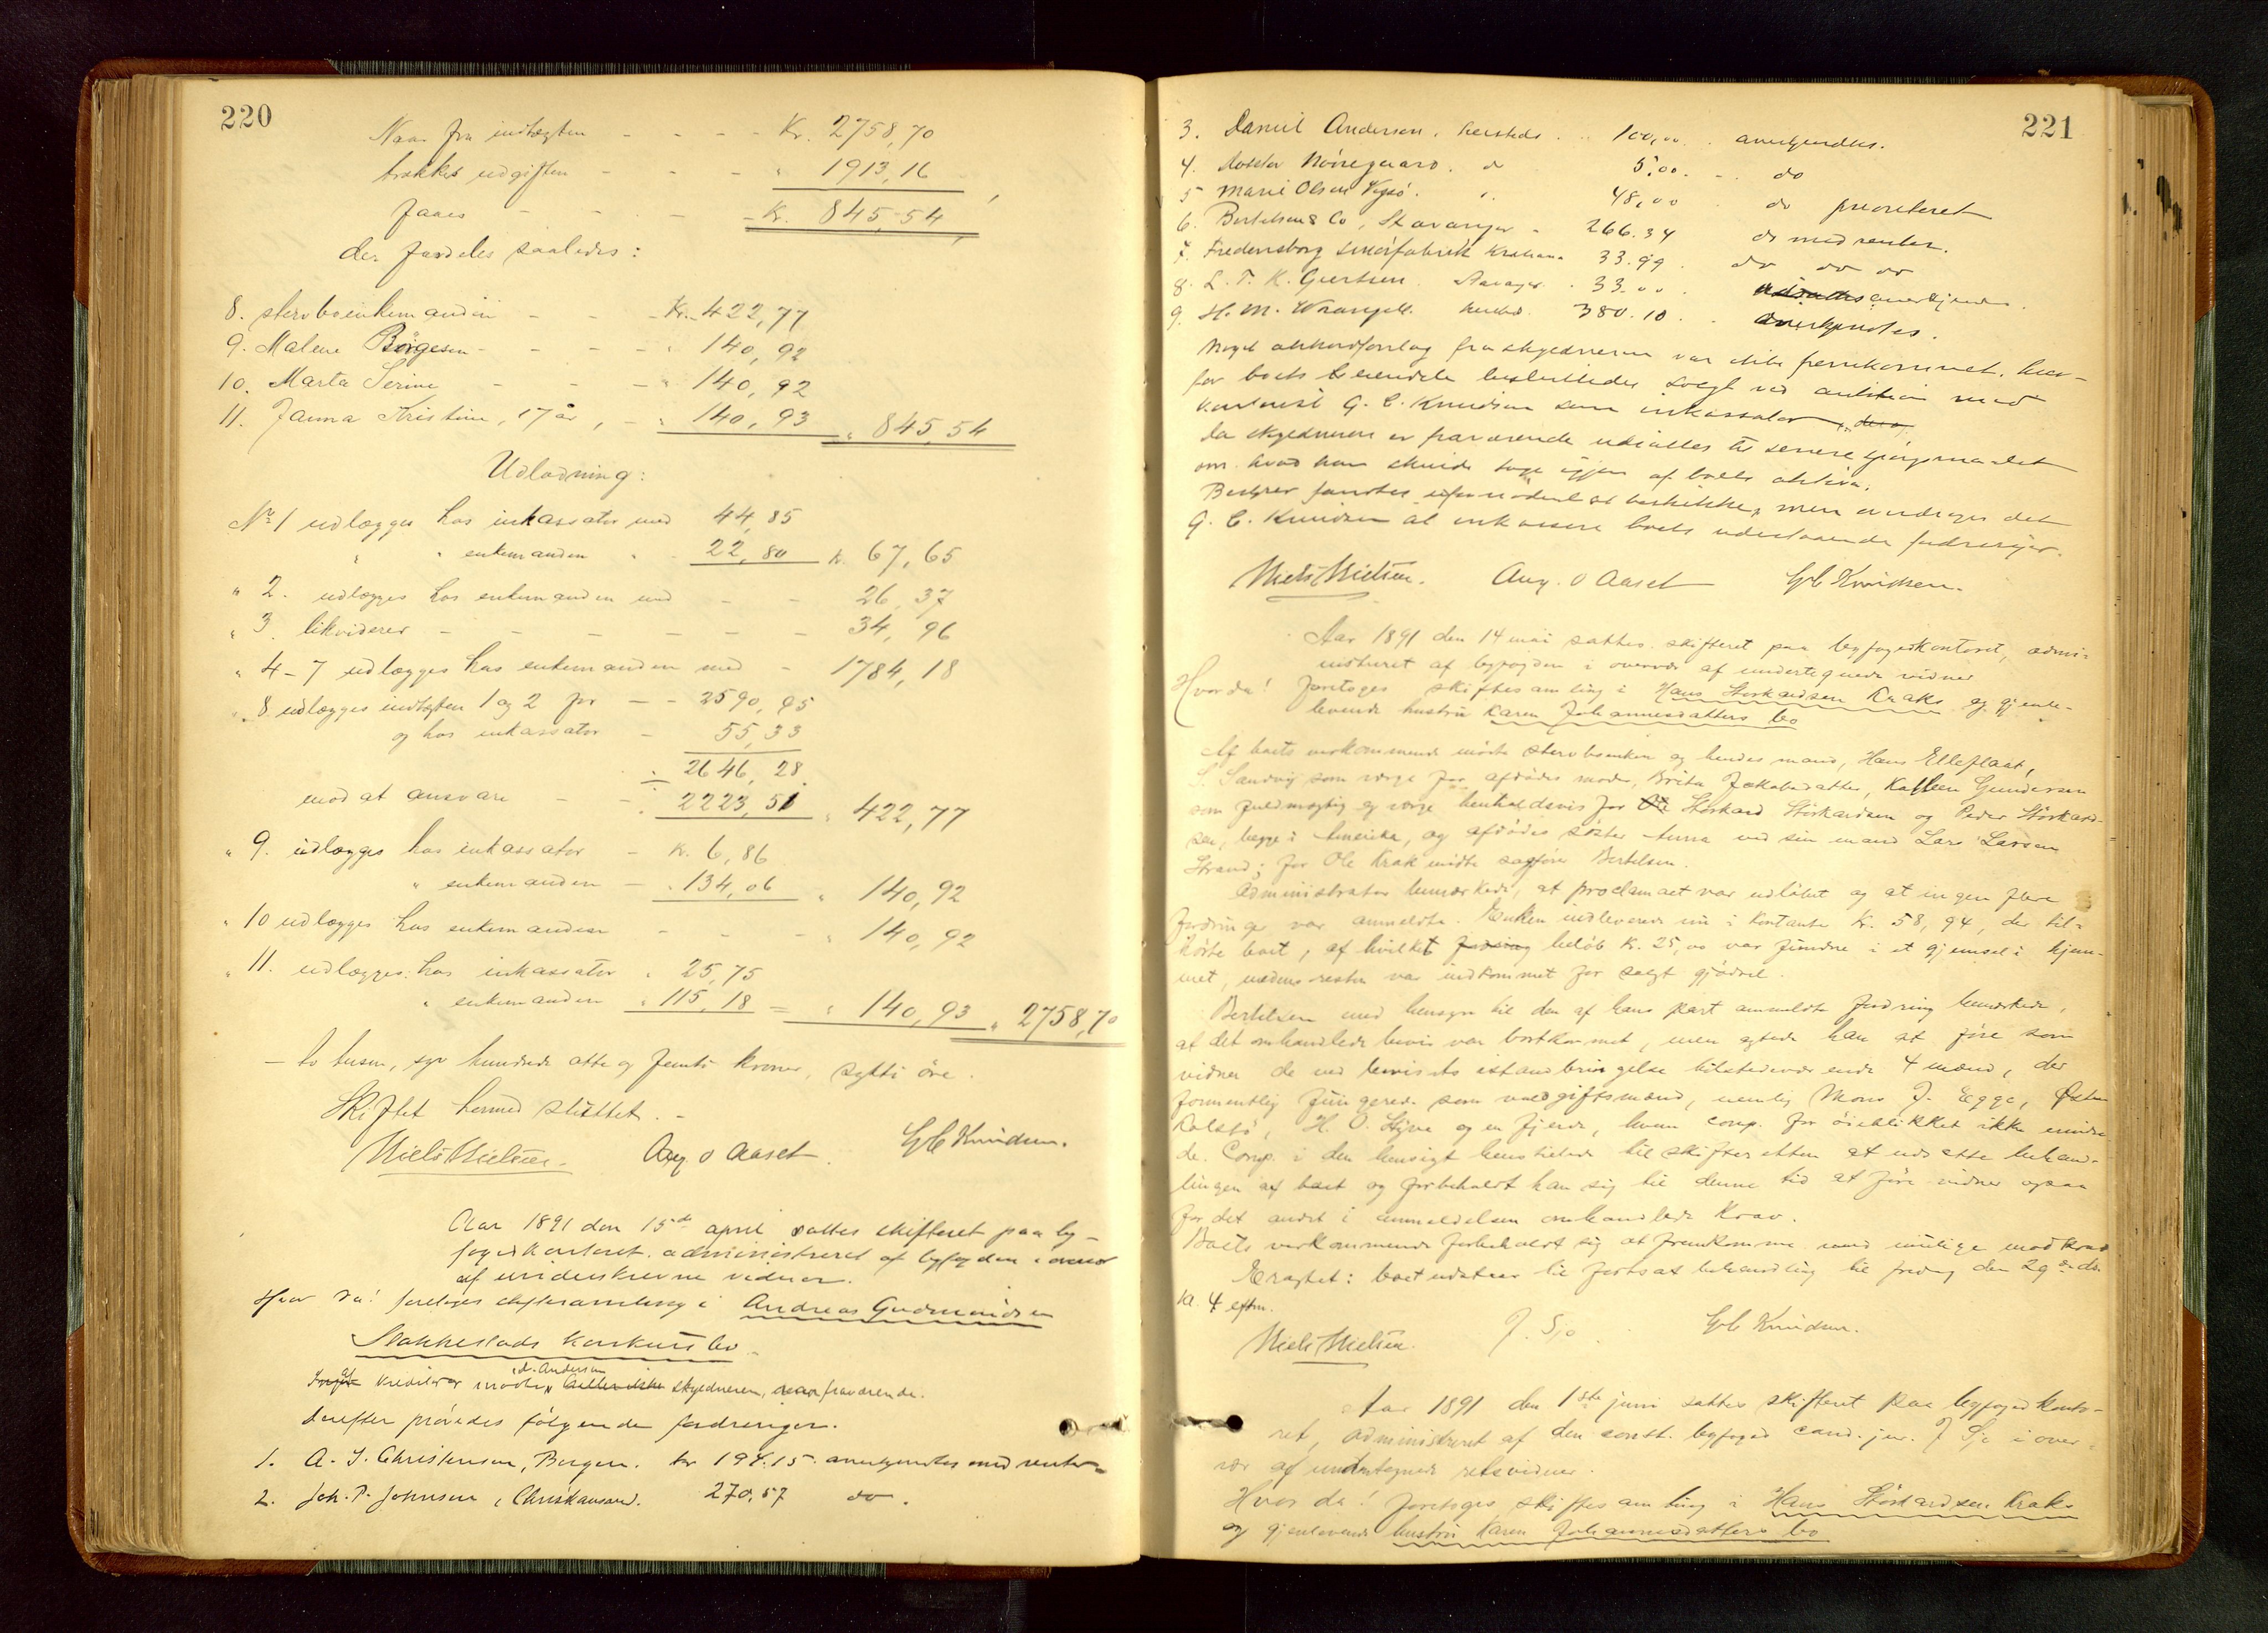 220
Naar fra indtægten - - - - Kr. 2758,70
trækkes udgiften - - - " 1913,16
faaes - - - - Kr. 845,54,
der fordeles saaledes:
8. sterboenkemanden - - - Kr. 422,77
9. Malene Börgesen - - - - " 140,92
10. Marta Serine - - - " 140,92
11. Janna Kristine, 17 år, - " 140,93 " 845,54
Udlodning:
No 1 udlægges hos inkassator med 44,85
" " enkemanden " 22,80 k. 67,65
" 2. udlægges hos enkemanden med - - 26,37
" 3. likviderer - - - - - - 34,96
" 4-7 udlægges hos enkemanden med - 1784,18
" 8 udlægges indtægten 1 og 2 for - - 2590,95
og hos inkassator - 55,33
2646,28
mod at ansvare - - 2223,51 " 422,77
" 9. udlægges hos inkassator - K. 6,86
" enkemanden - " 134,06 " 140,92
" 10 udlægges hos enkemanden - - - " 140,92
" 11. udlægges hos inkassator " 25,75
" enkemanden " 115,18 = " 140,93 " 2758,70
- to tusen, syv hundrede otte og femti kroner, sytti öre.
Skiftet hermed sluttet. -
Niels Nielsen. Aug. O Aaset. G C Knudsen.
Aar 1891 den 15de april sattes skifteret paa by-
fogedkontoret. administreret af byfogden i overvær
af underskrevne vidner.
Hvor da! foretoges skiftesamling i Andreas Gudmundsen
Stakkestads konkursbo.
kreditorer mödte D. Andersen skyldneren, var fraværende.
Derefter prövedes fölgende fordringer.
1. A. J. Christensen, Bergen. kr 194.15. anerkjendtes med renter
2. Joh. P. Johnsen, Christiansand. 270,57 do.
221
3. Daniel Andersen, hersteds . . 100,00 . anerkjendtes.
4. doktor Nörregaard. d 5,00 . - . do
5 Marie Olsen " 48,00 . do prioriteret
6. Bertelsen & Co, Stavanger " 266.34 do med renter.
7. Fredensborg Kristiania 33.99 . do do do
8. L. T. K. Gjertsen. Stavanger. . 33.00 . anerkjendes.
9. H. M. Wrangell. hersted. 380.10 . . anerkjendtes.
Noget akkordforslag fra skyldneren var ikke fremkommet. hvor-
for boets beslutedes solgt ved auktion med
G. C. Knudsen som inkassator
Da skyldneren er fraværende udsættes til senere spörgsmaalet
om hvad han skulde tage igjen af boets aktiva.
Bestyrer fandtes ufornödent at beskikke, men overdroges det
G. C. Knudsen at inkassere boets udestaaende fordringer.
Niels Nielsen. Aug. O Aaset G C Knudsen.
Aar 1891 den 14 mai sattes skifteret paa byfogedkontoret, admi-
nistreret af byfogden i overvær af undertegnede vidner
Hvor da! foretoges skiftesamling i Hans Storkardsen Kraks og gjenle-
vende hustru Karen Johannesdatters bo
Af boets vedkommende mödte sterboenken og hendes mand, Hans Elleflaat,
S. Sandvig som værge for afdödes moder, Brita Jakobsdatter, Gundersen
som fuldmægtig og værge henholdsvis for Storkard Storkardsen og Peder Storkard-
sen, begge i Amerika, og afdödes söster Anna ved sin mand Lars Larsen
Strand; for Ole Krak mödte sagförer Bertelsen.
Administrator bemærkede, at proclamaet var udlöbet og at ingen flere
fordringer var anmeldte. Enken indleverede nu i kontanter kr. 58,94, der til-
hörte boet, af hvilket belöb kr. 25,00 var fundne i et gjemsel i hjem-
met, medens resten var indkommet for solgt gjödsel.
Bertelsen med hensyn til den af hans part anmeldte fordring bemærkede,
at det omhandlede bevis var bortkommet, men agtede han at före som
vidner de ved bevisets istandbringelse tilstedeværende 4 mænd, der
formentlig fungerede som voldgiftsmænd, nemlig Mons J. Egge, Østen
Kolstö, H. O. Styve og en fjerde, hvem comp. for öieblikket ikke mindes
de. Comp. i den hensigt henstillede til skifteretten at udsætte behand-
lingen af boet og forbeholdt han sig til denne tid at före vidner ogsaa
for det andet i anmeldelsen omhandlede krav.
Boets vedkommende forbeholdt sig at fremkomme med mulige modkrav
Eragtet: boet udsættes til fortsat behandling til fredag den 29de ds.
kl. 4 eftm.
Niels Nielsen. J. Sjo. G C Knudsen.
Aar 1891 den 1ste juni sattes skifteret paa byfogedkonto-
ret, administreret af den const. byfoged cand. jur. J Sjo i over-
vær af undertegnede retsvidner.
Hvor da! foretoges skiftesamling i Hans Storkardsen Kraks
og gjenlevende hustru Karen Johannesdatters bo